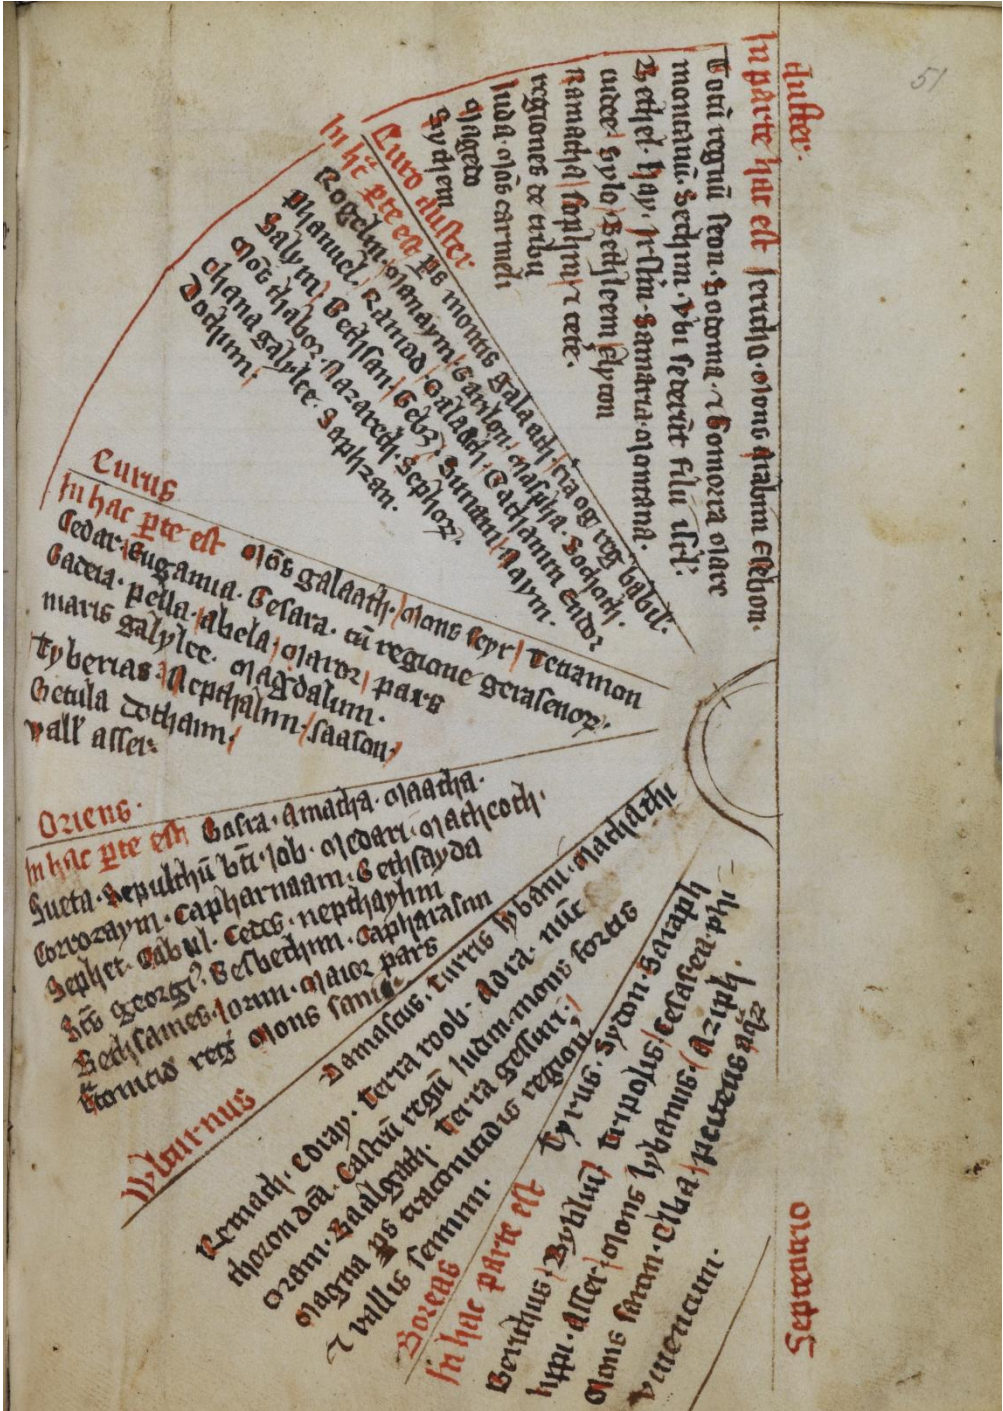 51
Auster.
In parte hac est Jericho. Mons Aabrim Esebon.
Totū regnū seon. Sodoma. ⁊ Gomorra Mare
montanū. Sechim. Vbi sederūt filii isrł.
Bethel. Hay. Jrłm. Samaria. Montana.
iudee. Sylo. Bethleem
Ramatha sophim ⁊ cete.
regiones de tribu
Juda. Mōs carmeli
Magedo
Sychem
Euro Auster.
In hac ꝑte est ꝑs montis galaath. tra og reg babił.
Rogelim. Manaym. Garilon. Maspha. Sochoth.
Phanuel. Ramad. Galaath. Endor
Salym. Bethsan. Gelz. Sunam. Naym.
Mōs thabor. Nazareth. Sephorꝫ.
Chana galylee. Saphzan.
Dochum.
Eurus
In hac ꝑte est Mōs galaath. Mons seyr. Teuamon
Cedar. Euganua. Cesara. cū regione gerasenorꝫ
Gadera. pella. Abela. pars
maris galylee. Magdalum.
Tyberias. Nepthalim. saason.
Betula Dothaim.
vall assei.
Oriens.
In hac ꝑte est Gosra. Amatha. Maatha.
Sueta. Sepulchrū bti. Job. Medari. Mathcoch.
Corrozaym. Capharnaam. Bethsayda
Sephet. Cabul. Cedes. nepthaylim
Scs georgi9. Gesbethim. Capharason
Bethsames. Jorim. Maior pars
reg Mons sanir.
Wlturnus
Damascus. Turris lybani. Machathi
Remath. Edray. Terra roob. Adra. nūc
thoron dcā. Castrū regū Judim. mons fortis
Oram. Baalgath. Terra gessuri.
Magna ꝑs traconitidis region.
⁊ vallis sennim.
Boreas
In hac parte est Tyrus. Sydon. Saraph
Berithus. Byblium Tripolis Cesarea. phi
lippi. Asser. Mons lybanus. Aziph.
Mons saron. puteus aq̄rꝫ
viuencium.
Septentrio